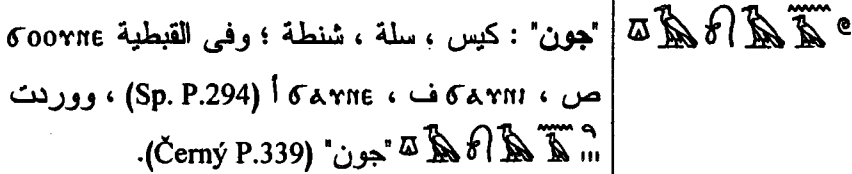 𓎼𓄿𓍯𓄿𓈖𓄿𓏲
"جون" : كيس ، سلة ، شنطة ؛ وفى القبطية ϭⲟⲟⲩⲛⲉ
ص ، ϭⲁⲩⲛⲓ ف ، ϭⲁⲩⲛⲉ أ (Sp. P.294) ، ووردت
𓎼𓄿𓍯𓄿𓈖𓄿𓏥 "جون" (Černý P.339).